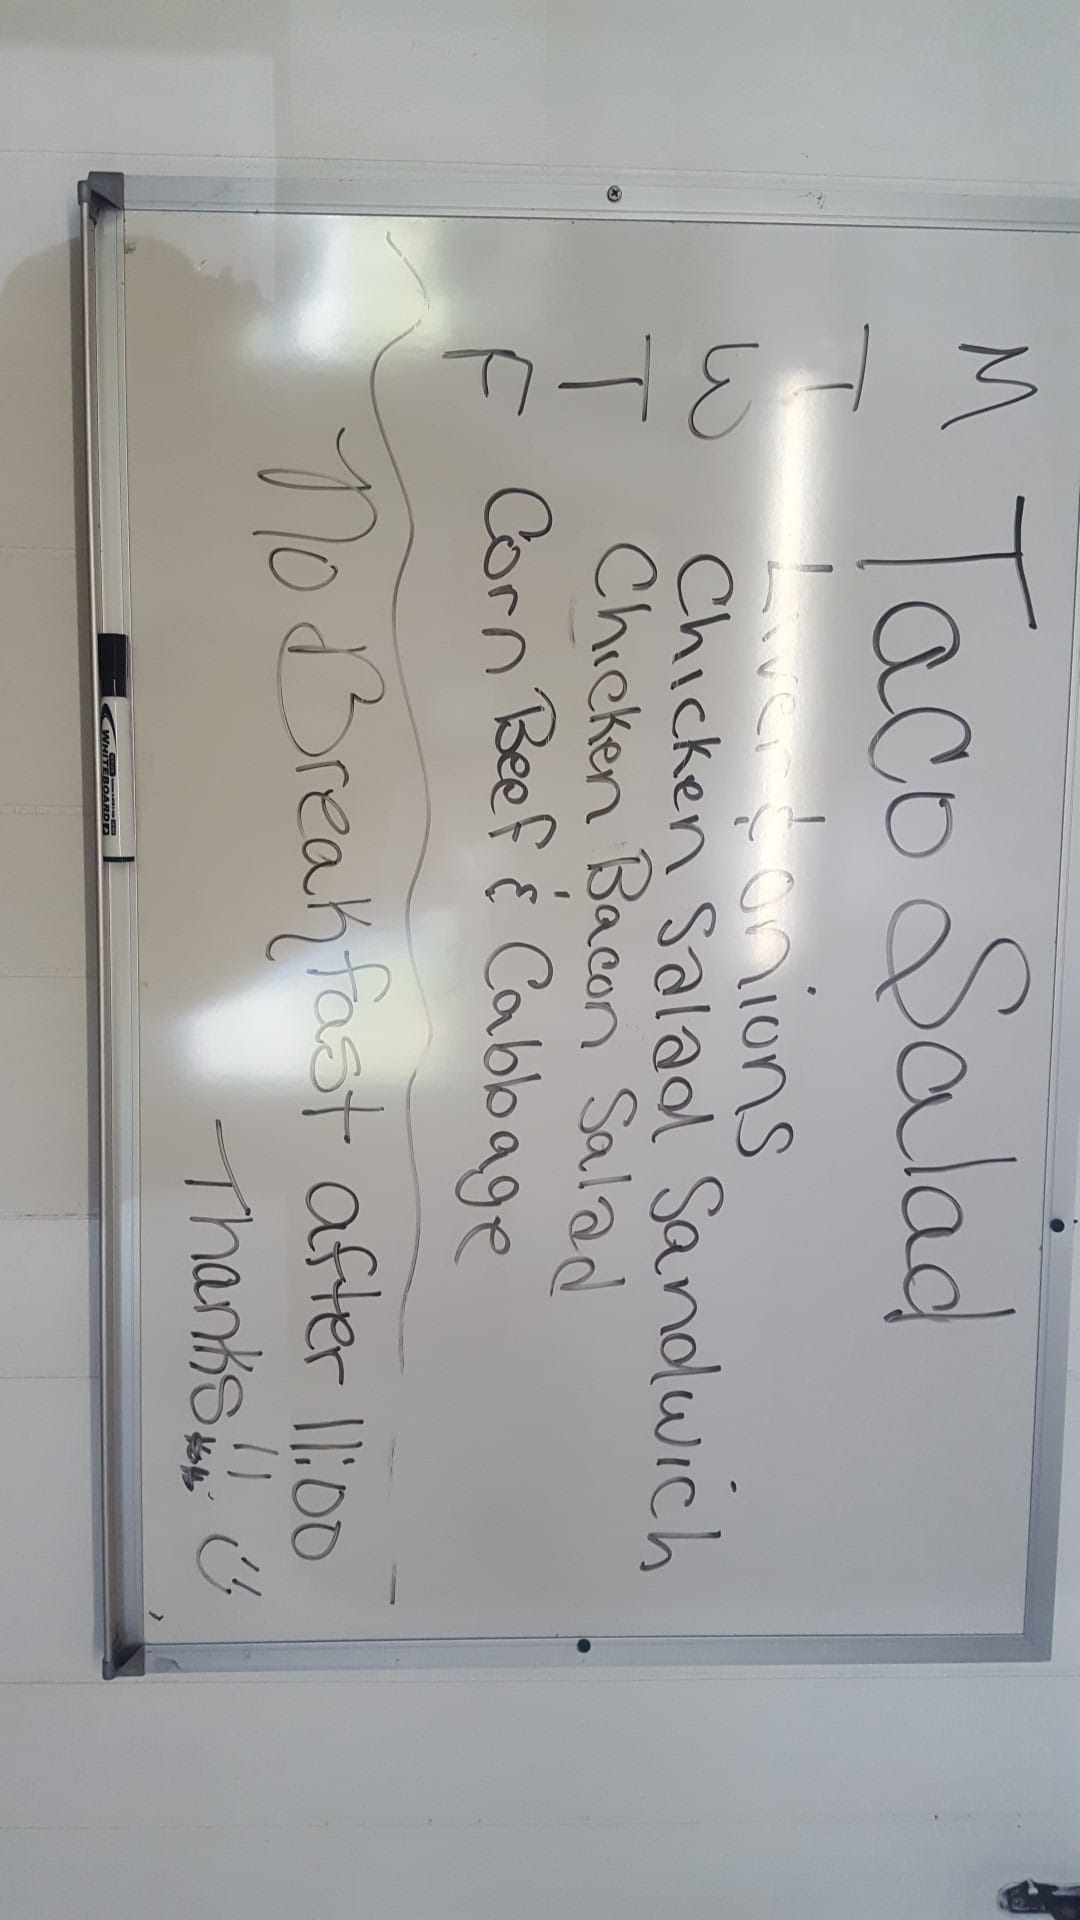 M Taco Salad
T Liver & onions
W Chicken Salad Sandwich
T Chicken Bacon Salad
F Corn Beef & Cabbage
No Breakfast after 11:00
Thanks!! :)
WHITEBOARD